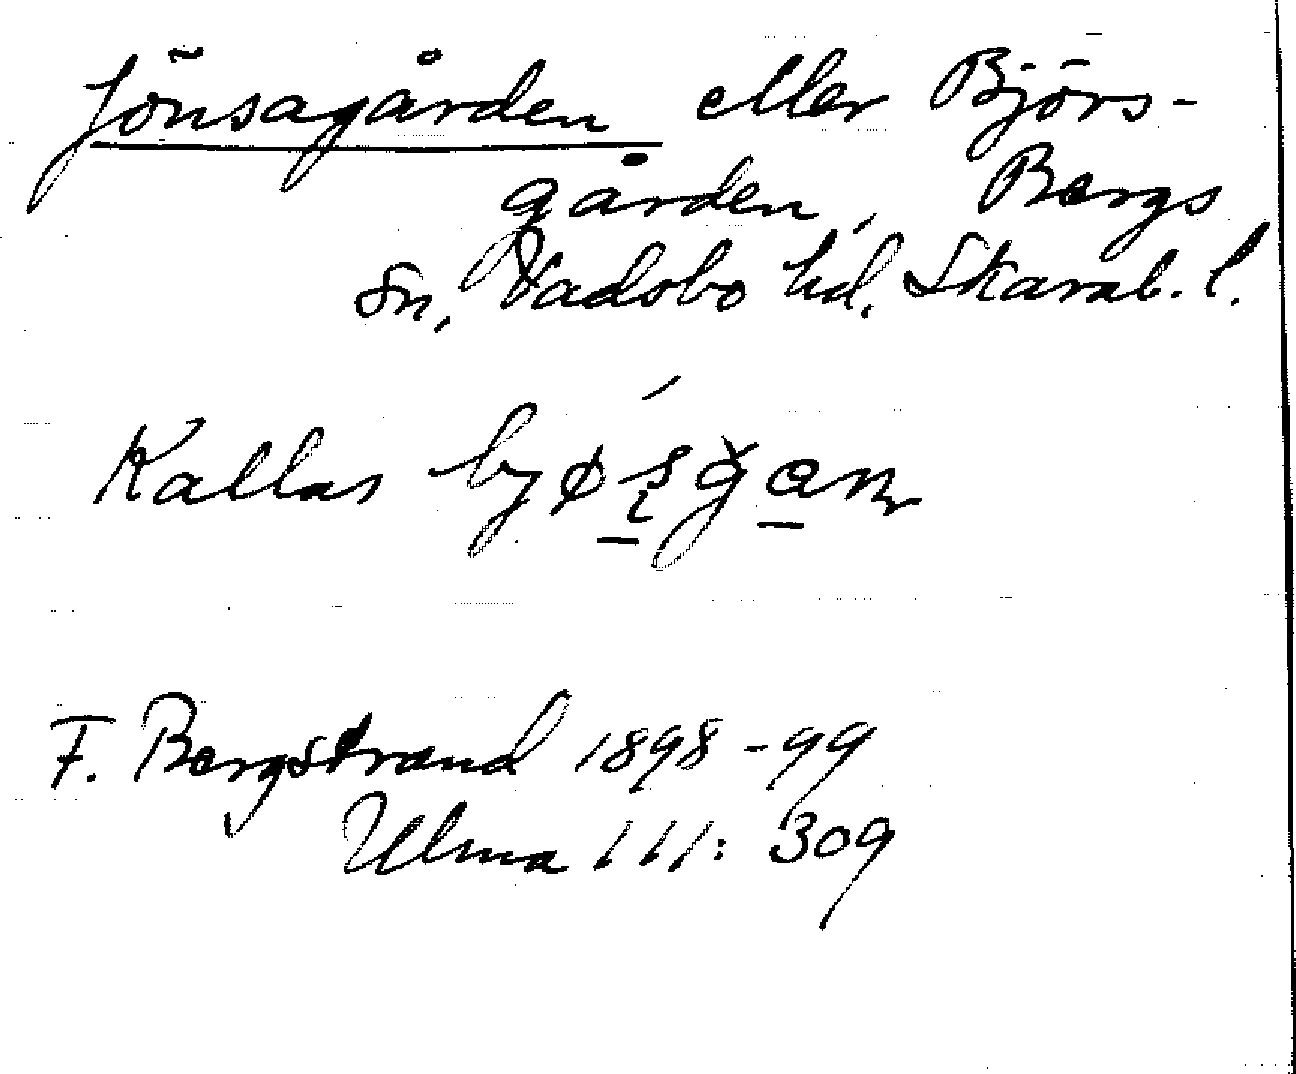 Jönsagården eller Björs-
gården, Bergs
sn, Vadsbo hd. Skarab. l.
Kallas
F. Bergstrand 1898-99
Ulma 111: 309